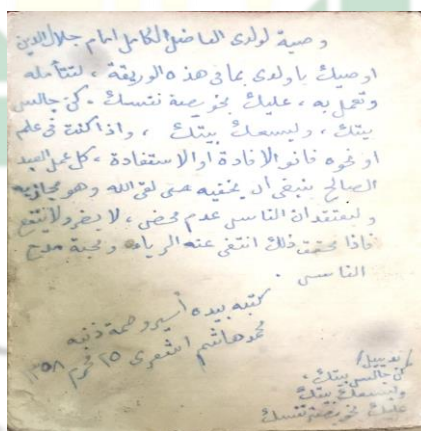 وصية لولدى الفاضل الكامل امام جلال الدين
اوصيك يا ولدى بما فى هذه الوريقة، لتتأمله
وتعمل به، عليك بخويصة نفسك. كن جالس
بيتك، وليسعك بيتك، واذا كنت فى علم
او نحوه فانو الافادة او الاستفادة، كل عمل العبد
الصالح ينبغى أن يخفيه حتى لقى الله وهو مجازيه
وليعتقد ان الناس عدم محض، لا يضر ولا ينفع
فاذا تحقق ذلك انتفى عنه الرياء ومحبة مدح
الناس.
كتبه بيده أسير وصمة ذنبه
محمد هاشم اشعرى ٢٥ محرم ١٣٥٨
/تذييل/
كن جالس بيتك،
وليسعك بيتك
عليك بخويصة نفسك